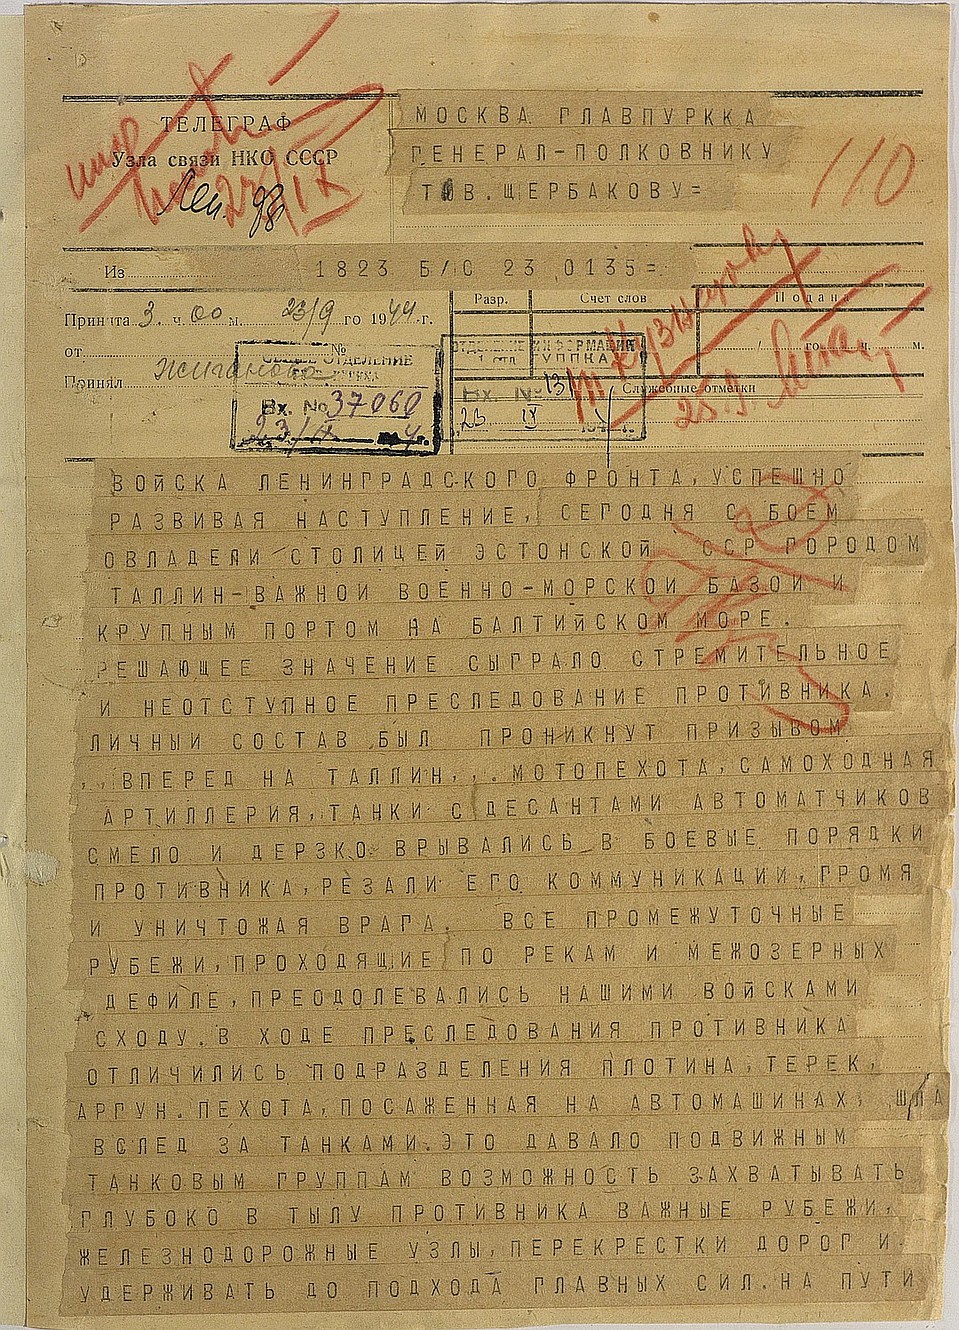 ТЕЛЕГРАФ
Узла связи НКО СССР
Лен. 98
24/IX
МОСКВА ГЛАВПУРККА
ГЕНЕРАЛ-ПОЛКОВНИКУ
ТОВ.ЩЕРБАКОВУ=
110
Из 1823 Б/С 23 0135=
Принята 3 ч. 00 м. 23/9 го 1944 г.
от
Принял Жиганова
Разр.
Счет слов
Подана
го ч. м.
Служебные отметки
№
ОБЩЕЕ ОТДЕЛЕНИЕ
Вх. № 37060
23/IX 4 г.
ОТДЕЛЕНИЕ ИНФОРМАЦИИ
1 отд.
Вх. №
23 IX
25.9.
ВОЙСКА ЛЕНИНГРАДСКОГО ФРОНТА,УСПЕШНО
РАЗВИВАЯ НАСТУПЛЕНИЕ, СЕГОДНЯ С БОЕМ
ОВЛАДЕЛИ СТОЛИЦЕЙ ЭСТОНСКОЙ ССР ГОРОДОМ
ТАЛЛИН-ВАЖНОЙ ВОЕННО-МОРСКОЙ БАЗОЙ И
КРУПНЫМ ПОРТОМ НА БАЛТИЙСКОМ МОРЕ.
РЕШАЮЩЕЕ ЗНАЧЕНИЕ СЫГРАЛО СТРЕМИТЕЛЬНОЕ
И НЕОТСТУПНОЕ ПРЕСЛЕДОВАНИЕ ПРОТИВНИКА.
ЛИЧНЫЙ СОСТАВ БЫЛ ПРОНИКНУТ ПРИЗЫВОМ
,,ВПЕРЕД НА ТАЛЛИН,,.МОТОПЕХОТА,САМОХОДНАЯ
АРТИЛЛЕРИЯ,ТАНКИ С ДЕСАНТАМИ АВТОМАТЧИКОВ
СМЕЛО И ДЕРЗКО ВРЫВАЛИСЬ В БОЕВЫЕ ПОРЯДКИ
ПРОТИВНИКА,РЕЗАЛИ ЕГО КОММУНИКАЦИИ,ГРОМЯ
И УНИЧТОЖАЯ ВРАГА. ВСЕ ПРОМЕЖУТОЧНЫЕ
РУБЕЖИ,ПРОХОДЯЩИЕ ПО РЕКАМ И МЕЖОЗЕРНЫХ
ДЕФИЛЕ,ПРЕОДОЛЕВАЛИСЬ НАШИМИ ВОЙСКАМИ
СХОДУ.В ХОДЕ ПРЕСЛЕДОВАНИЯ ПРОТИВНИКА
ОТЛИЧИЛИСЬ ПОДРАЗДЕЛЕНИЯ ПЛОТИНА,ТЕРЕК,
АРГУН.ПЕХОТА,ПОСАЖЕННАЯ НА АВТОМАШИНАХ, ШЛА
ВСЛЕД ЗА ТАНКАМИ.ЭТО ДАВАЛО ПОДВИЖНЫМ
ТАНКОВЫМ ГРУППАМ ВОЗМОЖНОСТЬ ЗАХВАТЫВАТЬ
ГЛУБОКО В ТЫЛУ ПРОТИВНИКА ВАЖНЫЕ РУБЕЖИ,
ЖЕЛЕЗНОДОРОЖНЫЕ УЗЛЫ,ПЕРЕКРЕСТКИ ДОРОГ И
УДЕРЖИВАТЬ ДО ПОДХОДА ГЛАВНЫХ СИЛ.НА ПУТИ